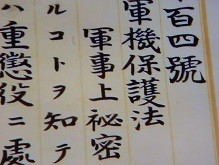 百四號
軍機保護法
軍事上秘密
ルコトヲ知テ
ハ重懲役ニ處